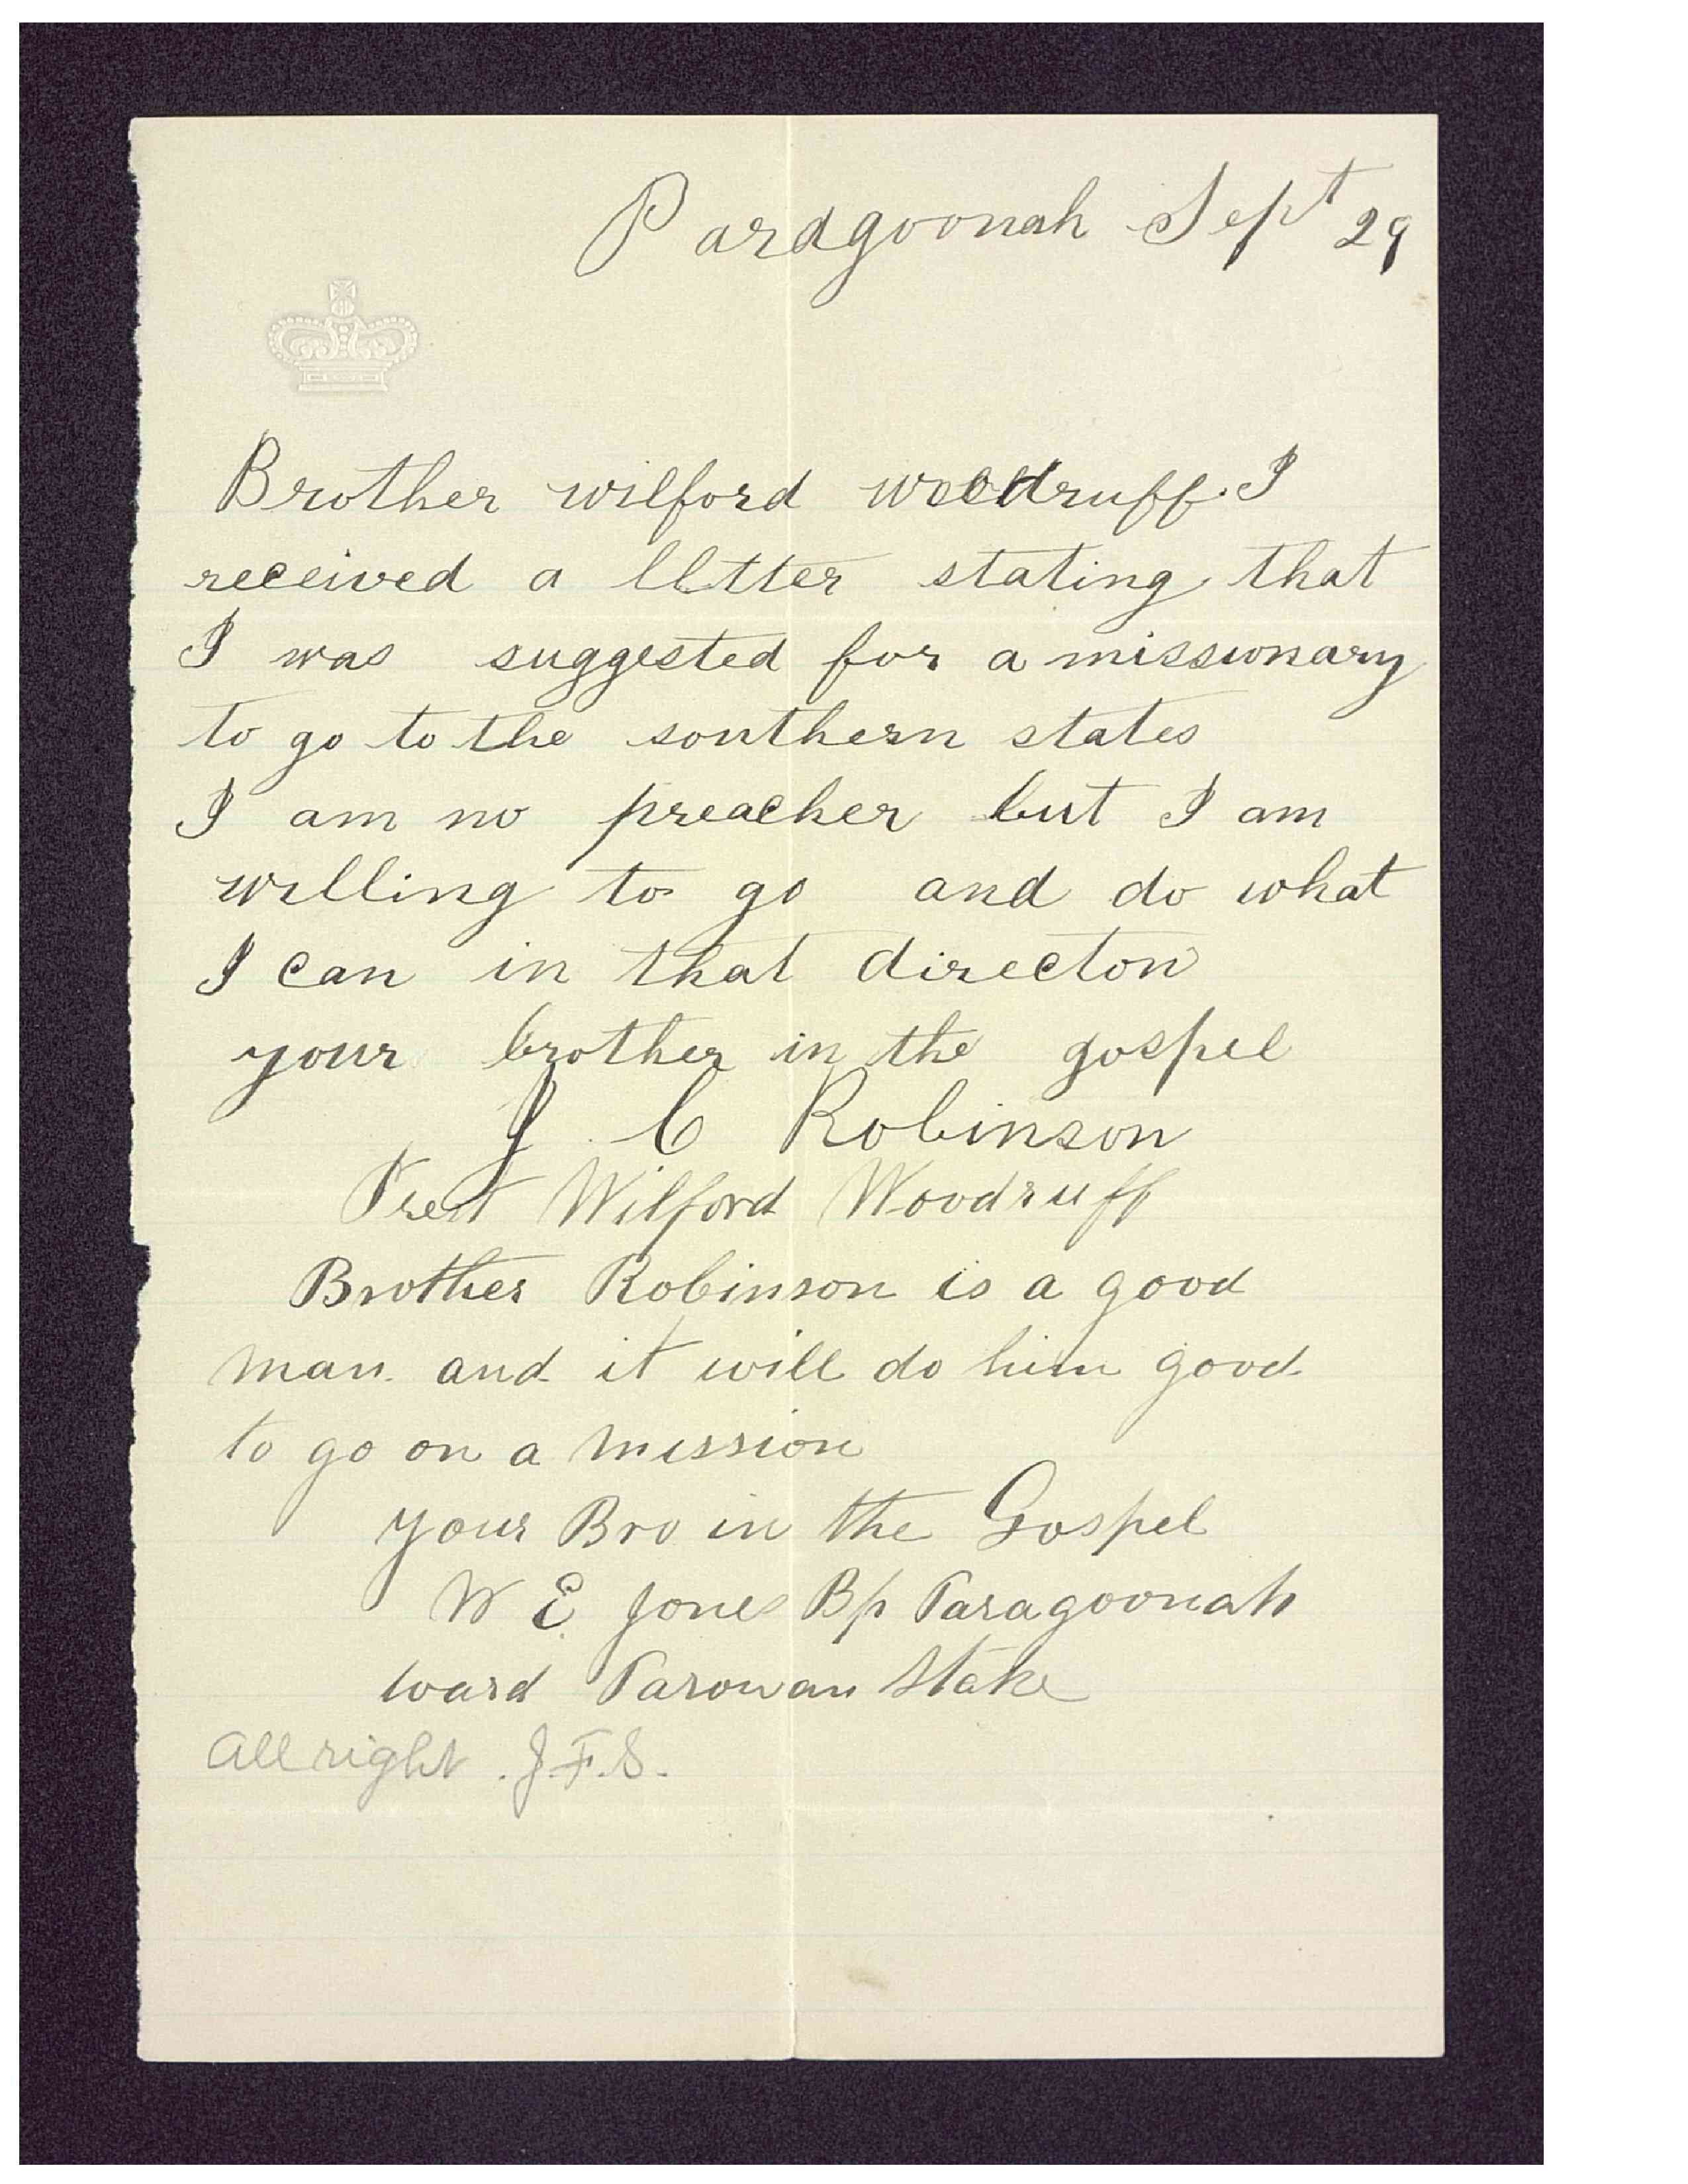 Pardgoonah Sept 29
Brother wilford woodruff. I
received a lltter stating that
I was suggested for a missionary
to go to the southern states
I am no preacher but I am
willing to go and do what
I can in that directon
your brother in the gospel
J. C Robinson
Prest Wilford Woodruff
Brother Robinson is a good
man. and it will do him good
to go on a mission
your Bro in the Gospel
W E Jones Bp Paragoonah
ward Parowan Stake
All right. J.F.S.